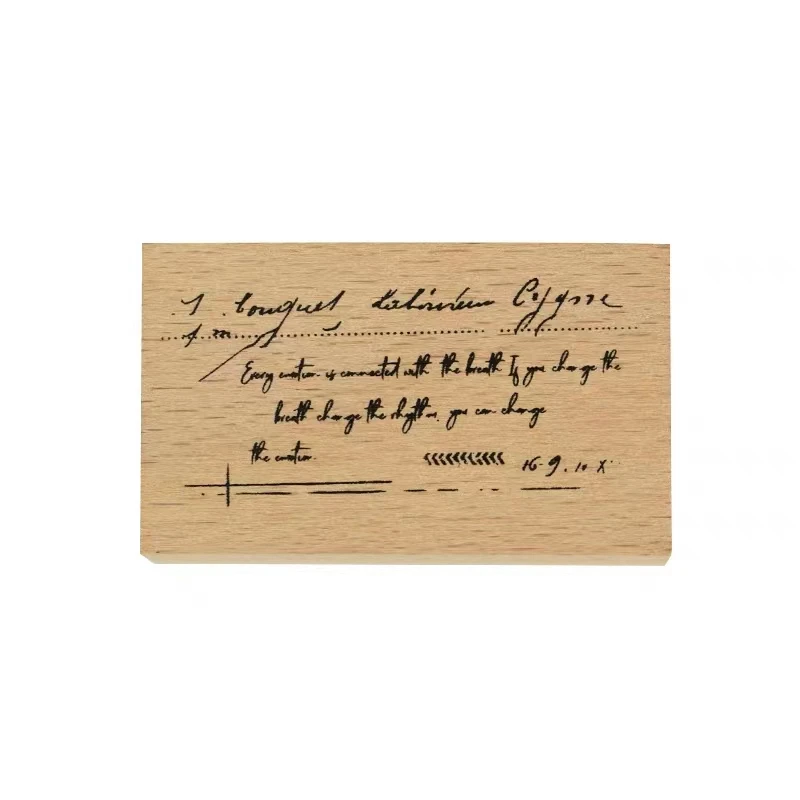 1 bouquet Cygne
Every emotion is connected with the breath If you change the
breath change the rhythm, you can change
the emotion.
16-9. 10 X